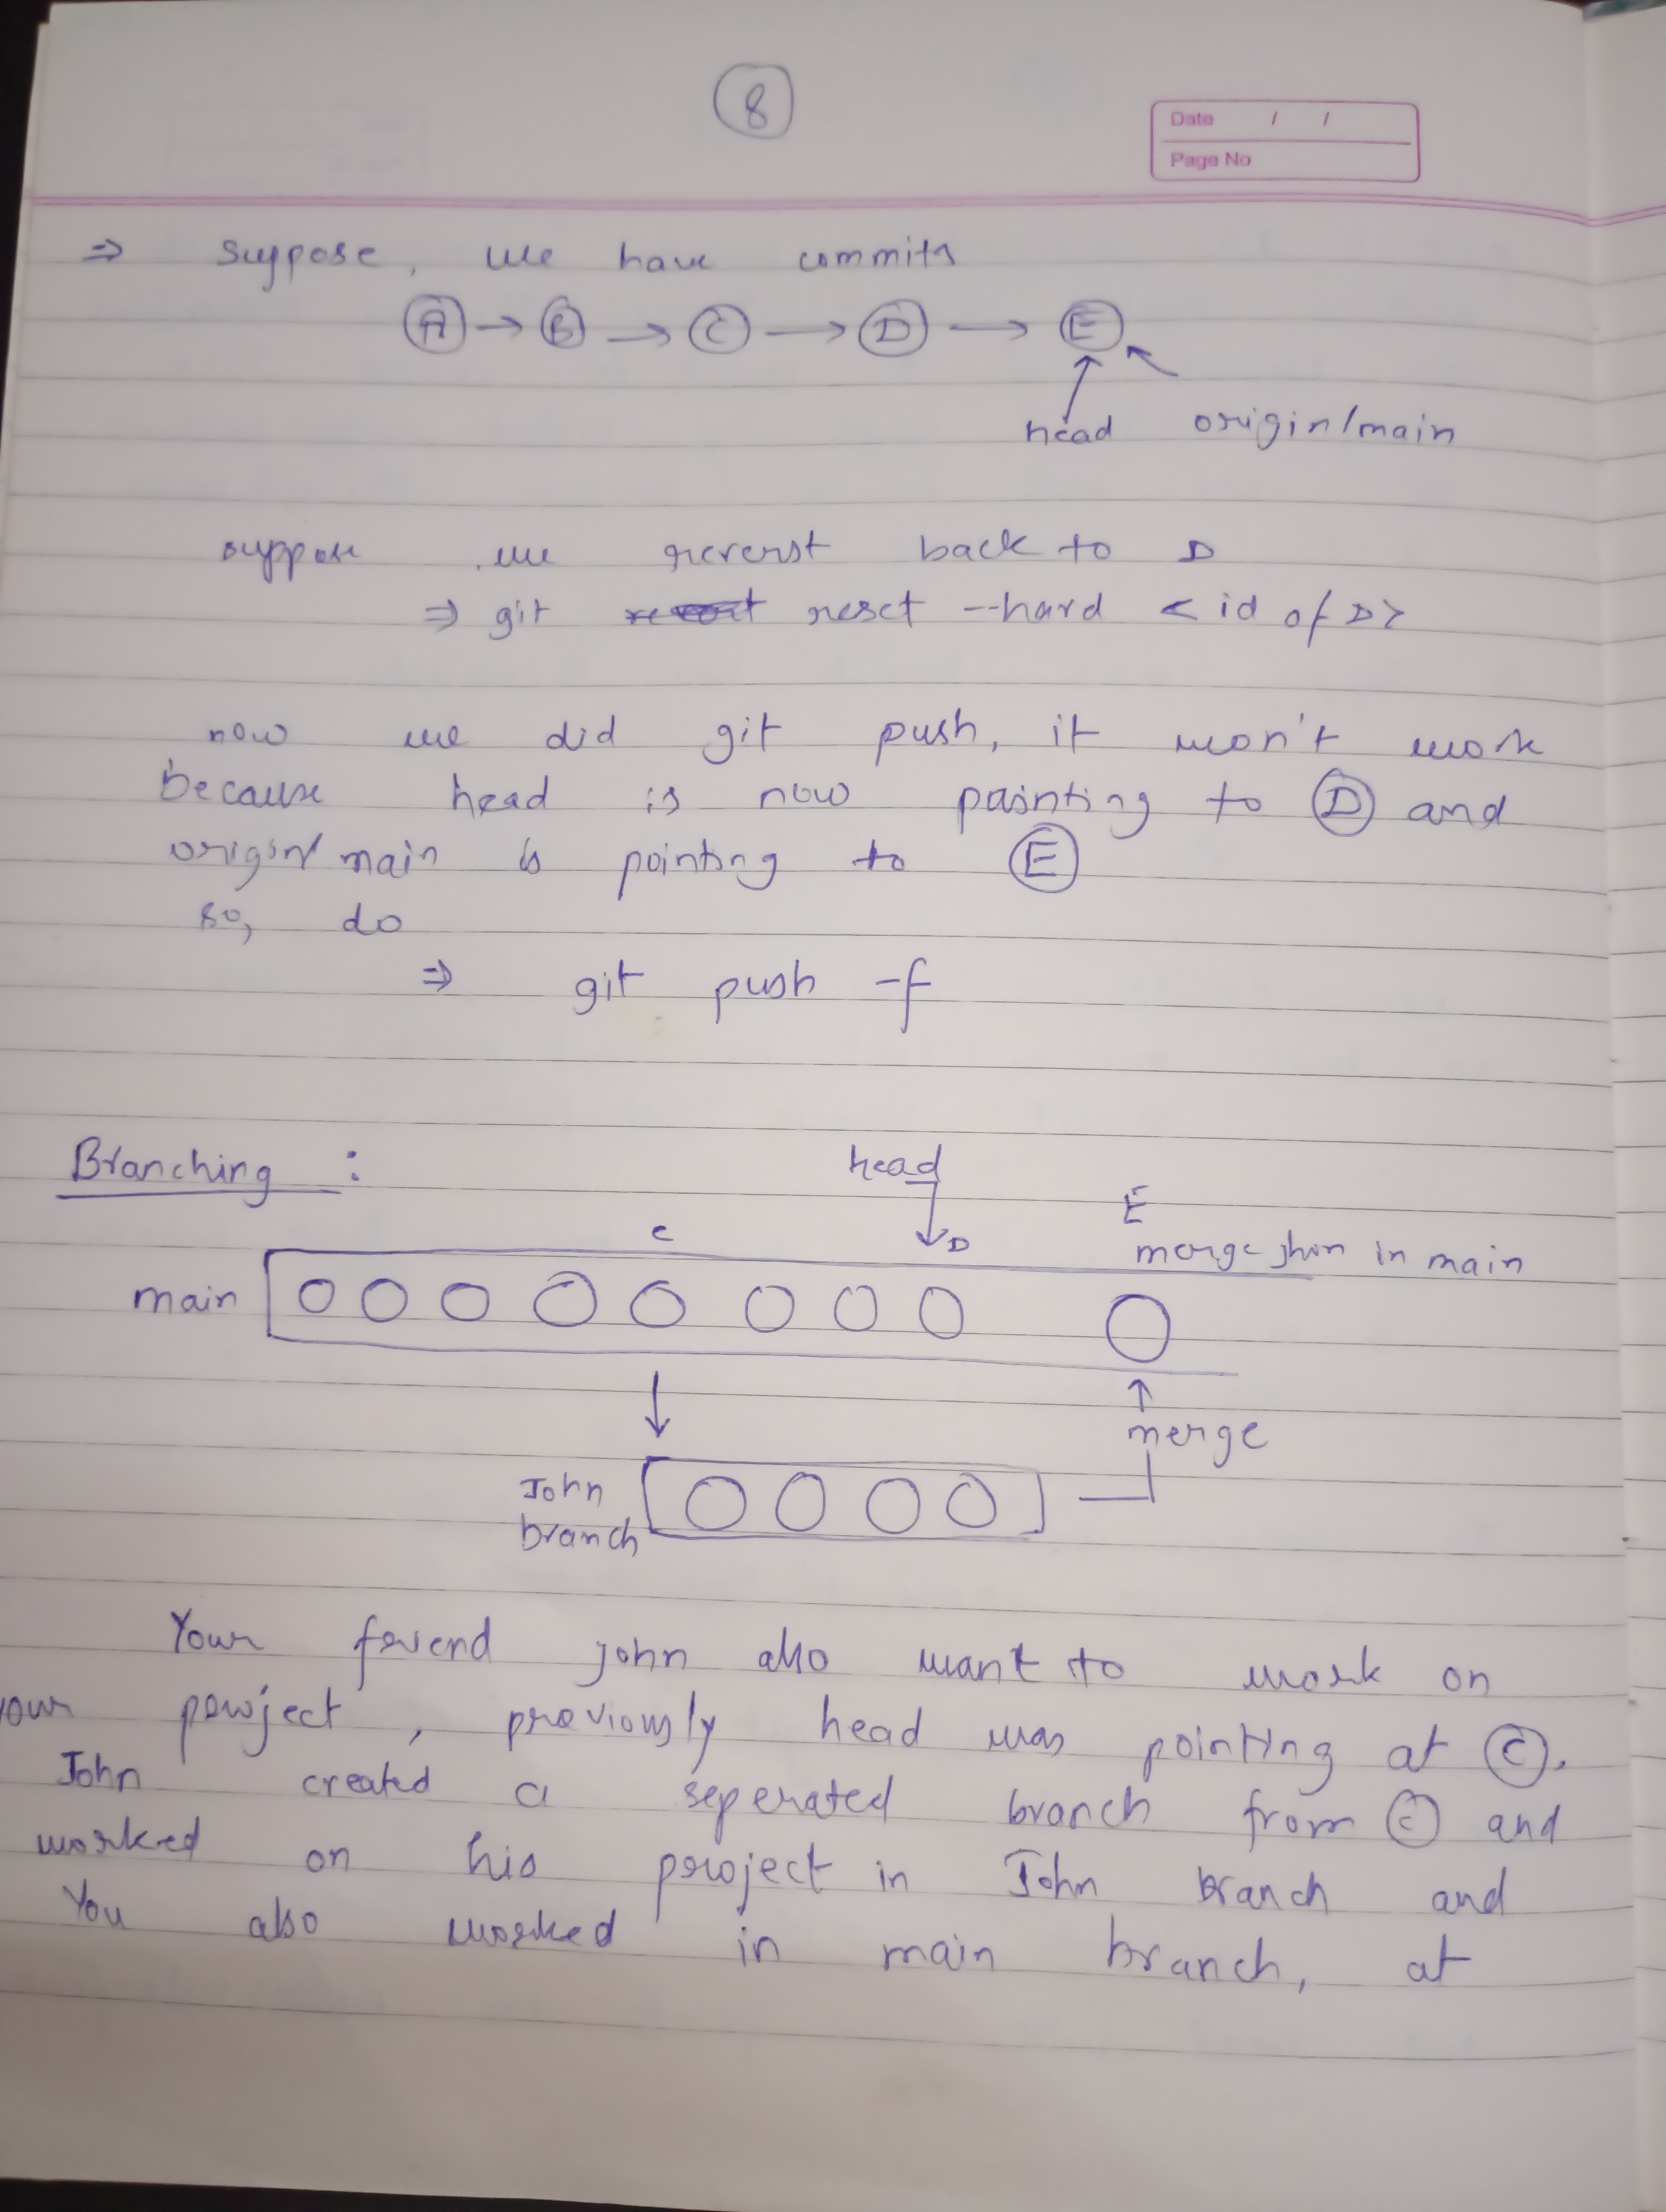 8
Date / /
Page No
⇒ suppose, we have commits
A → B → C → D → E
head origin/main
suppose we reverst back to D
⇒ git reset --hard < id of D>
now we did git push, it won't work
because head is now pointing to D and
origin/main is pointing to E
so, do
⇒ git push -f
Branching :
head
E
C D merge jhon in main
main
merge
John
branch
Your friend john also want to work on
your project, previously head was pointing at C.
John created a seperated branch from C and
worked on his project in John branch and
You also worked in main branch, at